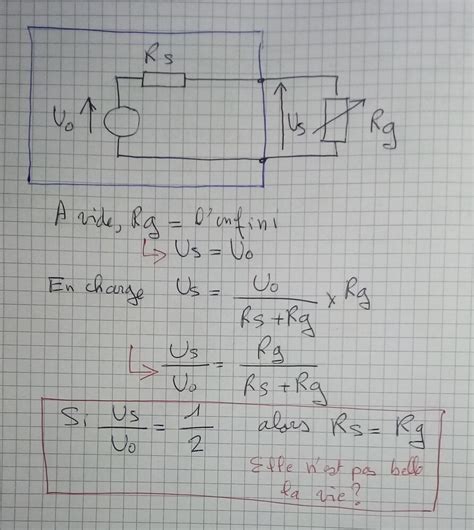 Rs
Uo
Us
Rg
A vide, Rg = l'infini
↳ Us = Uo
En charge Us = Uo / (Rs + Rg) × Rg
↳ Us / Uo = Rg / (Rs + Rg)
Si Us / Uo = 1 / 2 alors Rs = Rg
Elle n'est pas belle
la vie ?